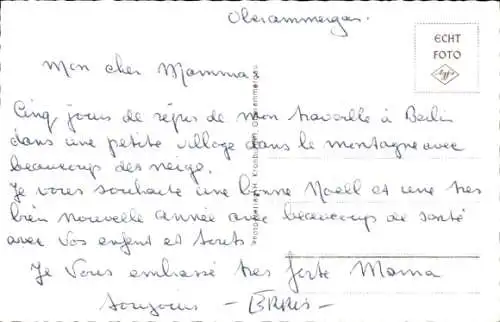 Oberammergau.
ECHT
FOTO
Agfa
Mon cher Mamma
Cinq jours de répos de mon travaille à Berlin
dans une petite village dans le montagne avec
beaucoup des neige.
Je vous souhaite une bonne Noëll et une tres
bien nouvelle année avec beaucoup de santé
avec vos enfent et touts
Je vous embassé tres forte Mama
toujours